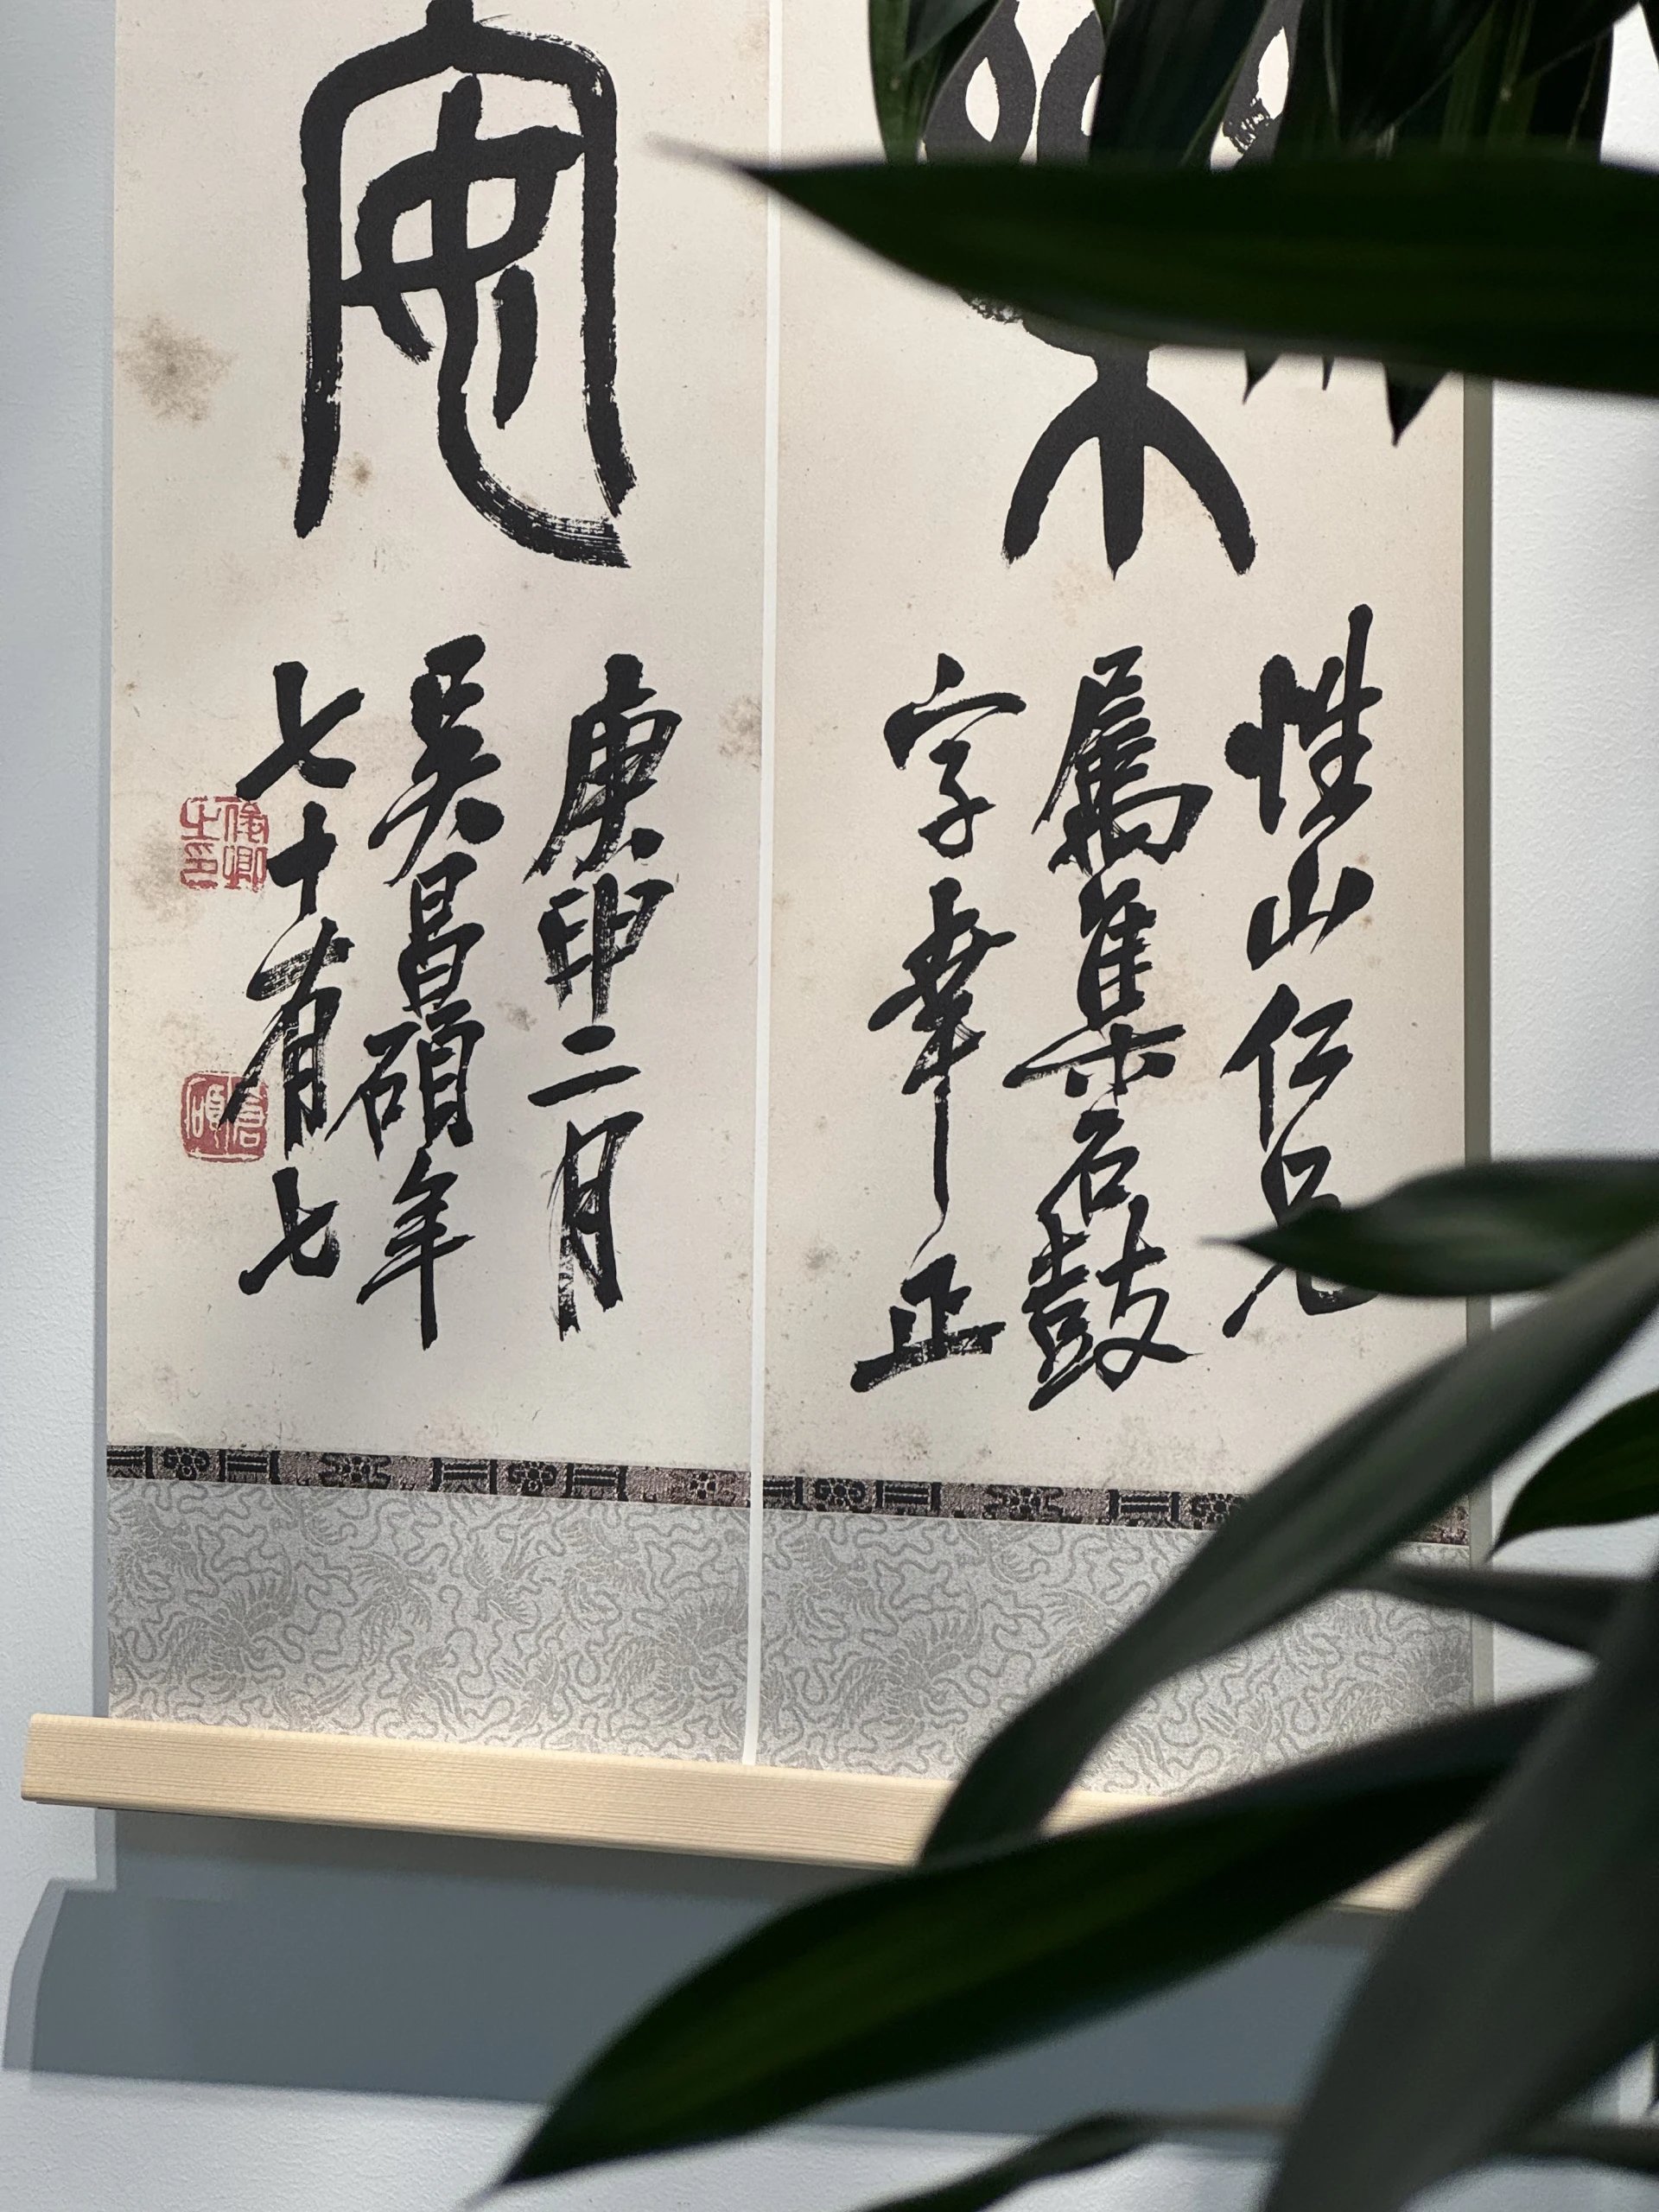 樂
性山仁兄
屬集石鼓
字幸正
安
庚申二月
吳昌碩年
七十有七
俊卿之印
倉碩